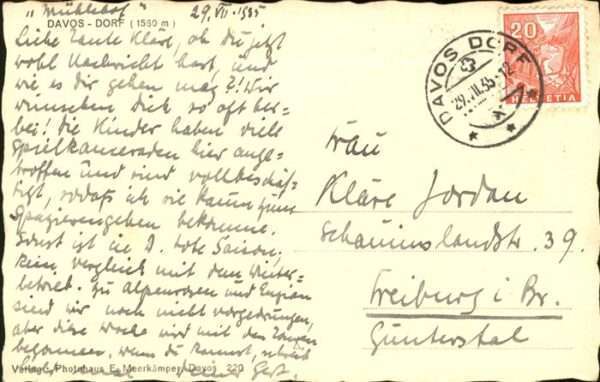 "Mühlehof" 29. VII. 1935
DAVOS - DORF (1560 m)
Liebe Tante Kläre, ob du jetzt
wohl Nachricht hast, und
wie es dir gehen mag?! Wir
wünschen dich so oft her=
bei! die Kinder haben viele
Spielkameraden hier ange=
troffen und sind vollbeschäf=
tigt, sodass ich sie kaum zum
Spazierengehen bekomme.
Sonst ist in D. tote Saison,
kein Vergleich mit dem Winter=
betrieb. Zu Alpenrosen und Enzian
sind wir noch nicht vorgedrungen,
aber diese Woche wird mit den Touren
begonnen. Wenn du kannst, schreib
Verlag: Photohaus E. Meerkämper, Davos 220
20
HELVETIA
DAVOS DORF
29.VII.35-12
Frau
Kläre Jordan
Schauinslandstr. 39.
Freiburg i Br.
Günterstal